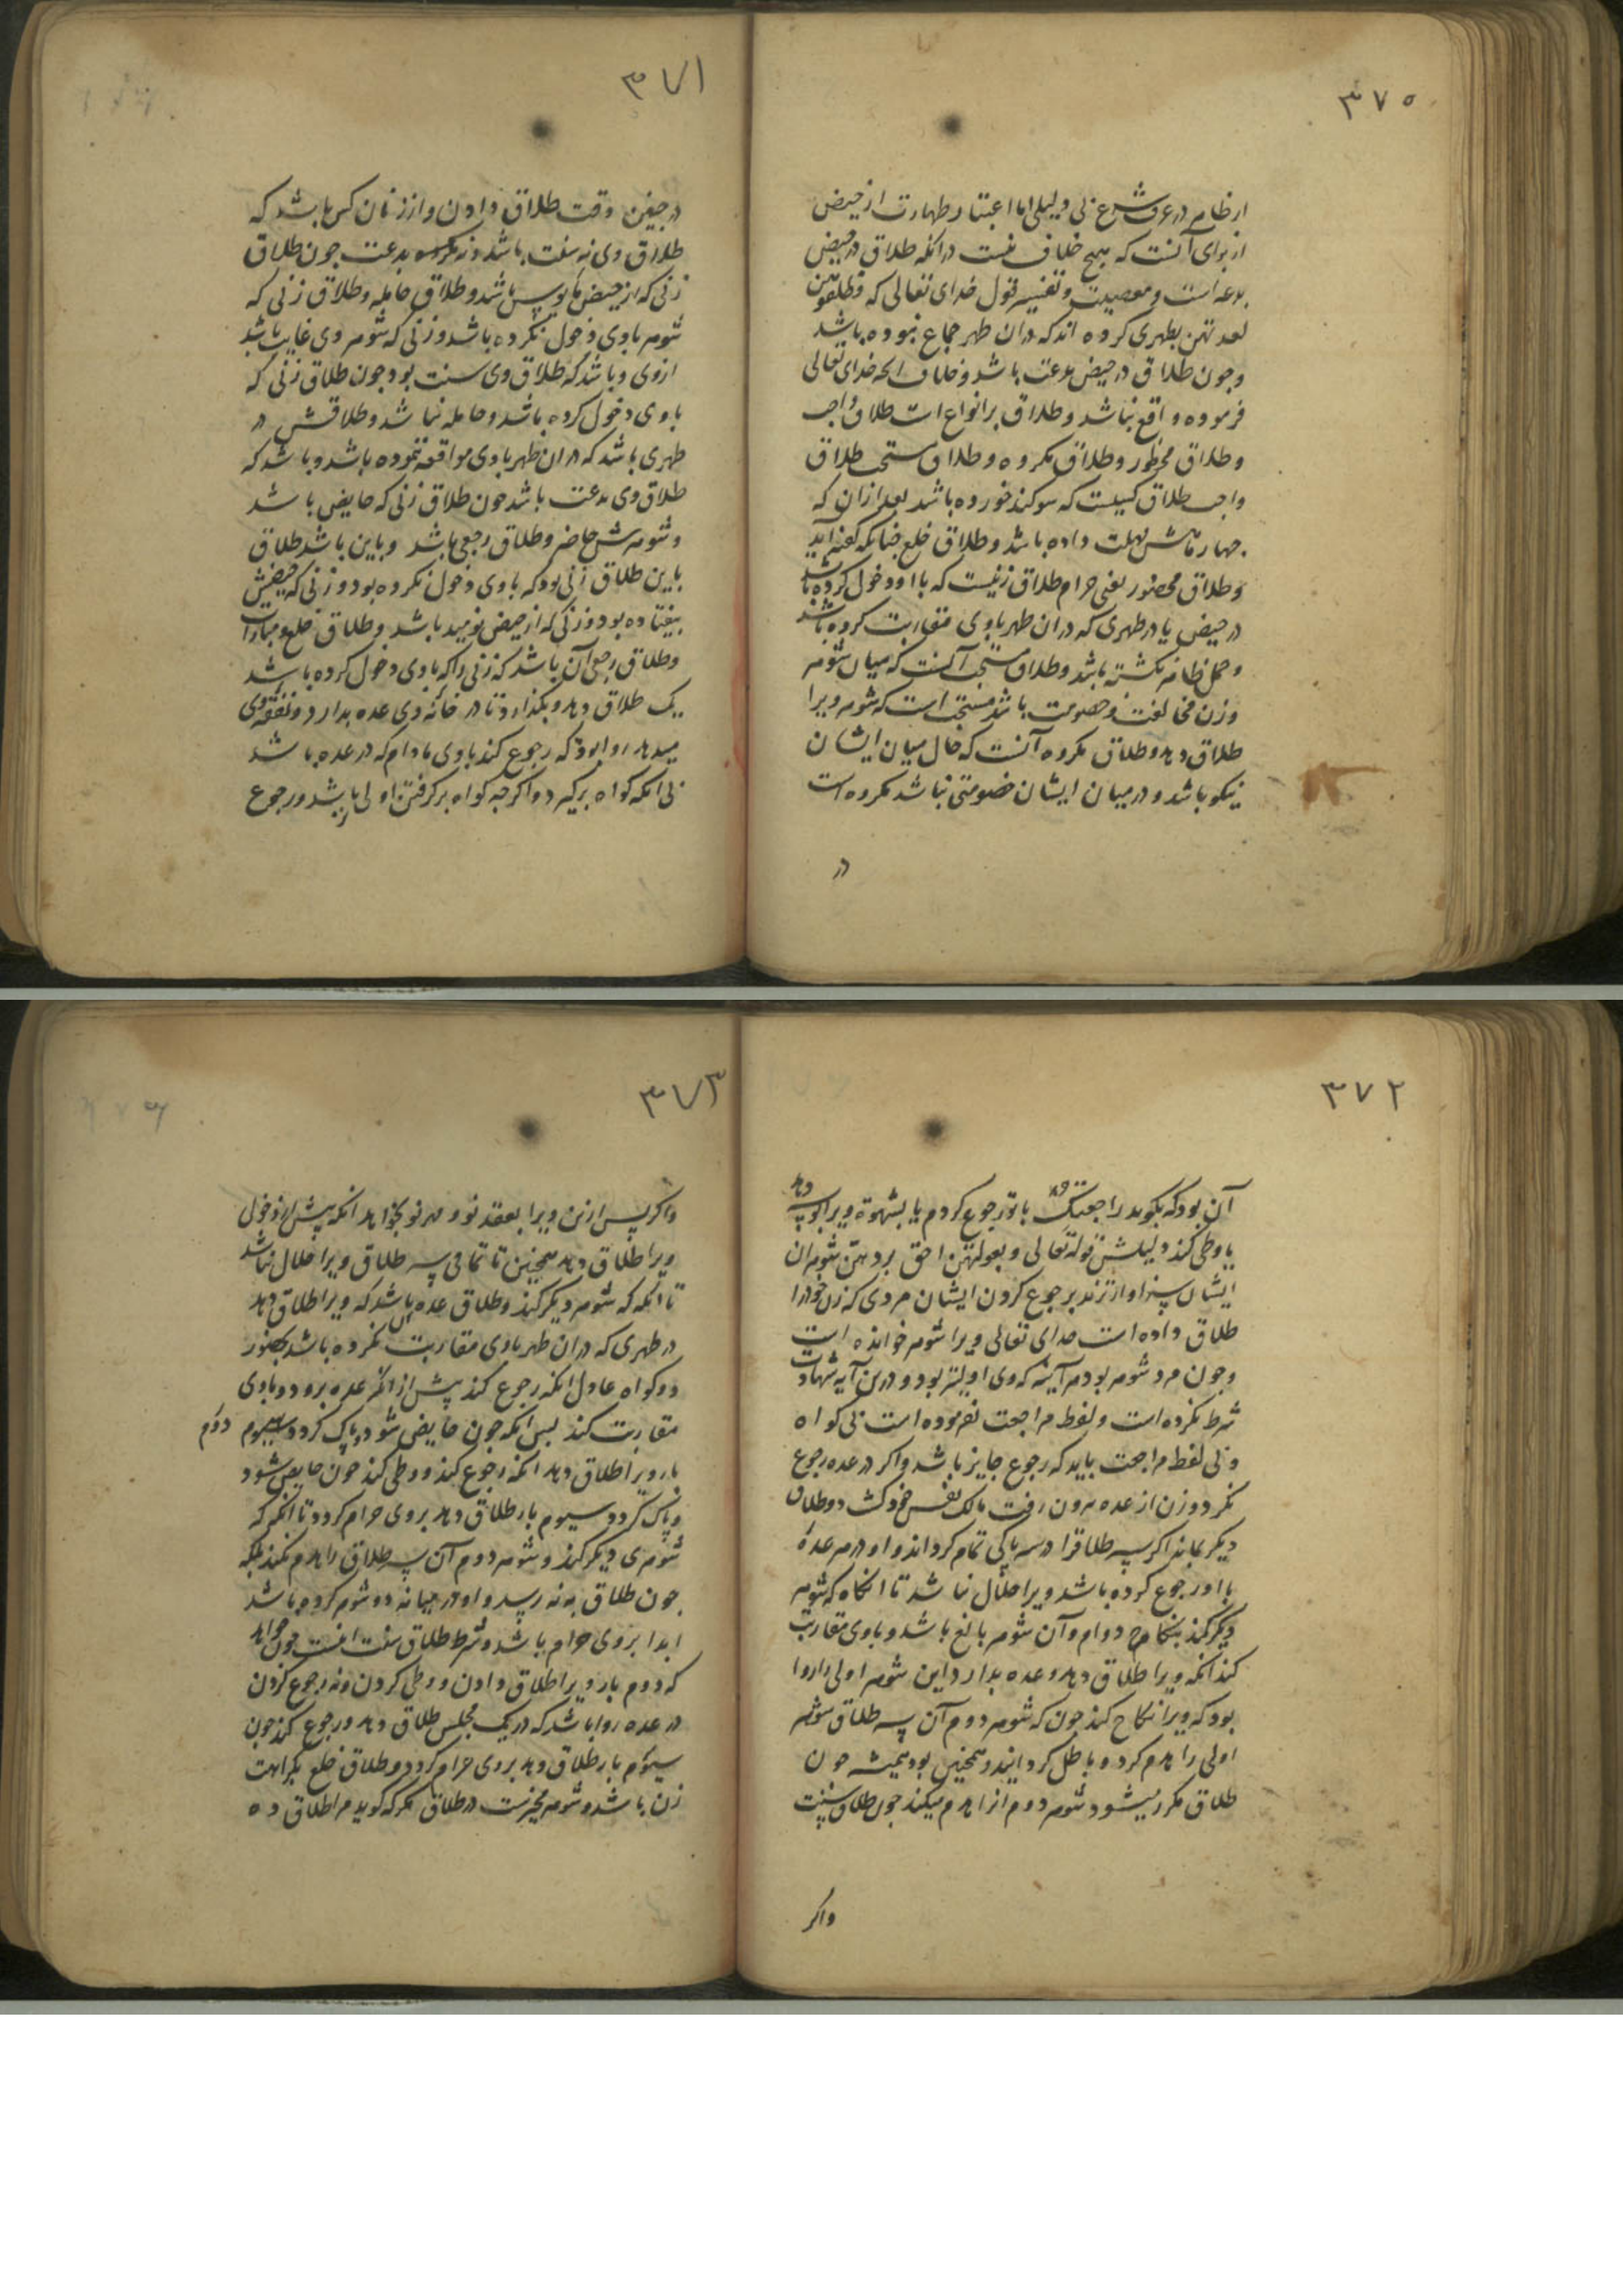 ۳۷۵
از ظاهر در عرف شرع بی دلیلی اما اعتبار طهارت از حیض
از برای آنست که هیچ خلاف نیست درانکه طلاق در حیض
بدعه است و معصیت و تفسیر قول خدای تعالی که فطلقوهن
لعدتهن بطهری کرده اند که دران طهر جماع نبوده باشد
وجون طلاق در حیض بدعت باشد وخلاف انچه خدای تعالی
فرموده واقع نباشد وطلاق بر انواع است طلاق واجب
وطلاق محظور وطلاق مکروه وطلاق مستحب طلاق
واجب طلاق کسیست که سوکند خورده باشد بعد ازان که
جهار ماهش مهلت داده باشد وطلاق خلع جنانکه گفته اید
وطلاق محضور یعنی حرام طلاق زنیست که با او دخول کرده باشد
در حیض یا در طهری که دران طهر باوی مقاربت کرده باشد
وحمل ظاهر نکشته باشد وطلاق مستحب آنست که میان شوهر
وزن مخالفت وخصومت باشد مستحب است که شوهر ویرا
طلاق دهد وطلاق مکروه آنست که حال میان ایشان
نیکو باشد ودر میان ایشان خصومتی نباشد مکروه است
در
۳۷۱
در جنین وقت طلاق دادن واز زنان کس باشد که
طلاق وی نه سنت باشد ونه بدعت جون طلاق
زنی که از حیض مایوس باشد وطلاق حامله وطلاق زنی که
شوهر باوی دخول نکرده باشد وزنی که شوهر وی غایب باشد
ازوی وباشد که طلاق وی سنت بود جون طلاق زنی که
باوی دخول کرده باشد وحامله نباشد وطلاقش در
طهری باشد که دران طهر باوی مواقعه ننموده باشد وباشد که
طلاق وی بدعت باشد جون طلاق زنی که حایض باشد
وشوهرش حاضر وطلاق رجعی باشد وباین باشد طلاق
باین طلاق زنی بود که باوی دخول نکرده بود وزنی که حیضش
نیفتاده بود وزنی که از حیض نومید باشد وطلاق خلع ومبارات
وطلاق رجعی آن باشد که زنی را که باوی دخول کرده باشد
یک طلاق دهد وبکذارد تا در خانه وی عده بدارد ونفقه وی
میدهد روا بود که رجوع کند باوی مادام که در عده باشد
بی انکه کواه برکیرد واکرجه کواه برکرفتن اولی باشد ورجوع
۳۷۲
آن بود که بکوید راجعتک باتو رجوع کردم یا بشهوة ویرا بوسه دهد
یا وطی کند دلیلش قوله تعالی وبعولتهن احق بردهن شوهران
ایشان سزاوارترند برجوع کردن ایشان مردی که زن خود را
طلاق داده است خدای تعالی ویرا شوهر خوانده است
وجون مرد شوهر بود هرآینه که وی اولیتر بود ودرین آیه شهادت
شرط نکرده است ولفظ مراجعت نفرموده است بی کواه
وبی لفظ مراجعت باید که رجوع جایز باشد واکر در عده رجوع
نکرد وزن از عده بیرون رفت مالک نفس خود کشت دو طلاق
دیکر بماند اکر سه طلاقرا در سه پاکی تمام کرداند واو در هر عدهٔ
با او رجوع کرده باشد ویرا حلال نباشد تا انکاه که شوهر
دیکر کند بنکاح دوام وآن شوهر بالغ باشد وباوی مقاربت
کند انکه ویرا طلاق دهد وعده بدارد این شوهر اولی را روا
بود که ویرا نکاح کند جون که شوهر دوم آن سه طلاق شوهر
اولی را هدم کرد وباطل کردانید وهمچنین بود همیشه جون
طلاق مکرر میشود شوهر دوم انرا هدم میکند جون طلاق سنت
واکر
۳۷۳
واکر پس ازین ویرا بعقد نو ومهر نو بخواهد انکه پیش از دخول
ویرا طلاق دهد همچنین تا تمامی سه طلاق ویرا حلال نباشد
تا انکه که شوهر دیکر کند وطلاق عده آن باشد که ویرا طلاق دهد
در طهری که دران طهر باوی مقاربت نکرده باشد بحضور
دو کواه عادل انکه رجوع کند پیش از انکه عده برود وباوی
مقاربت کند پس انکه جون حایض شود وپاک کردد دوم
بار ویرا طلاق دهد انکه رجوع کند ووطی کند جون حایض شود
وپاک کردد سیوم بار طلاق دهد بروی حرام کردد تا انکه که
شوهری دیکر کند وشوهر دوم آن سه طلاق را هدم نکند بلکه
جون طلاق به نه رسد واو در میانه دو شوهر کرده باشد
ابدا بروی حرام باشد وشرط طلاق سنت اینست جون خواهد
که دوم بار ویرا طلاق دادن ووطی کردن ونه رجوع کردن
در عده روا باشد که در یک مجلس طلاق دهد ورجوع کند جون
سیوم بار طلاق دهد بروی حرام کردد وطلاق خلع بکراهت
زن باشد وشوهر مخیرست در طلاق هرکه کوید مرا طلاق ده